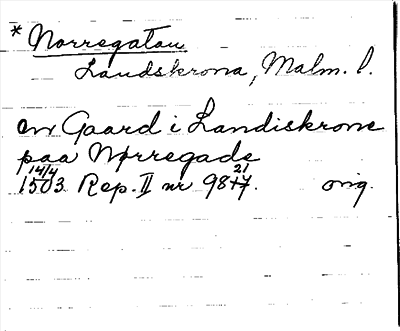 * Norregatan
Landskrona, Malm. l.
en Gaard i Landiskrone
paa Nørregade
14/4 21
1503 Rep. II nr 9847. orig.